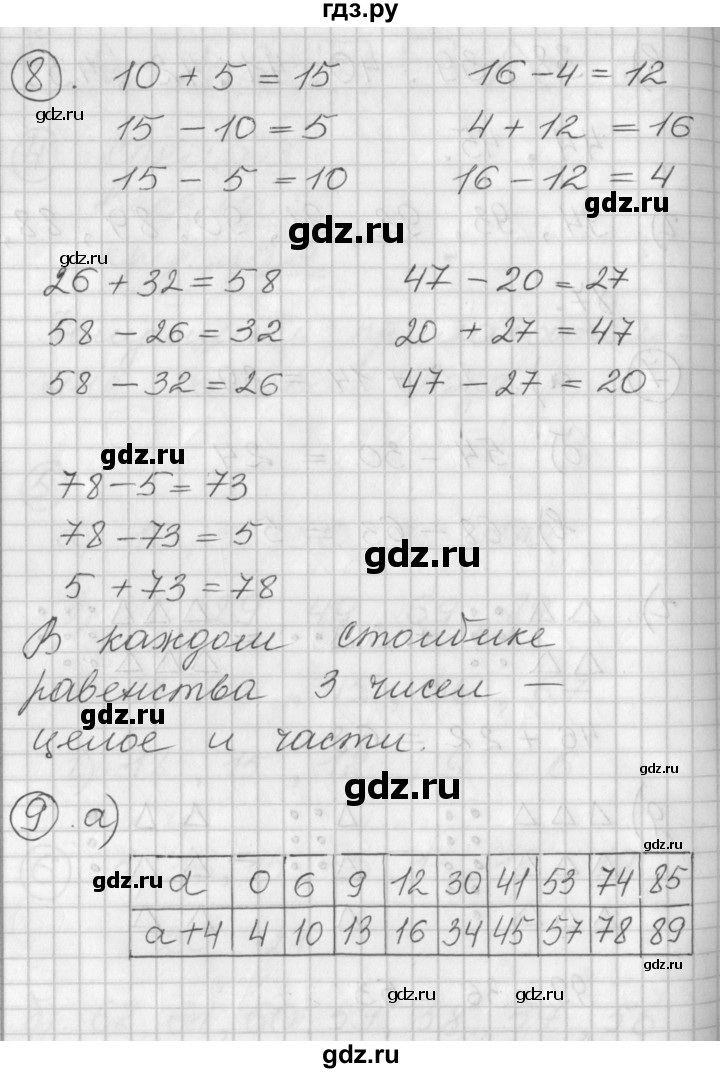 гдз.ру
8. 10 + 5 = 15 16 - 4 = 12
gdz.ru
15 - 10 = 5 4 + 12 = 16
15 - 5 = 10 16 - 12 = 4
gdz.ru
gdz.ru
gdz.ru
26 + 32 = 58 47 - 20 = 27
58 - 26 = 32 20 + 27 = 47
58 - 32 = 26 47 - 27 = 20
gdz.ru
78 - 5 = 73
78 - 73 = 5
gdz.ru
5 + 73 = 78
В каждом столбике
равенства 3 чисел —
gdz.ru
целое и части.
gdz.ru
gdz.ru
9. а)
gdz.ru
gdz.ru
a 0 6 9 12 30 41 53 74 85
a+4 4 10 13 16 34 45 57 78 89
gdz.ru
gdz.ru gdz.ru
gdz.ru